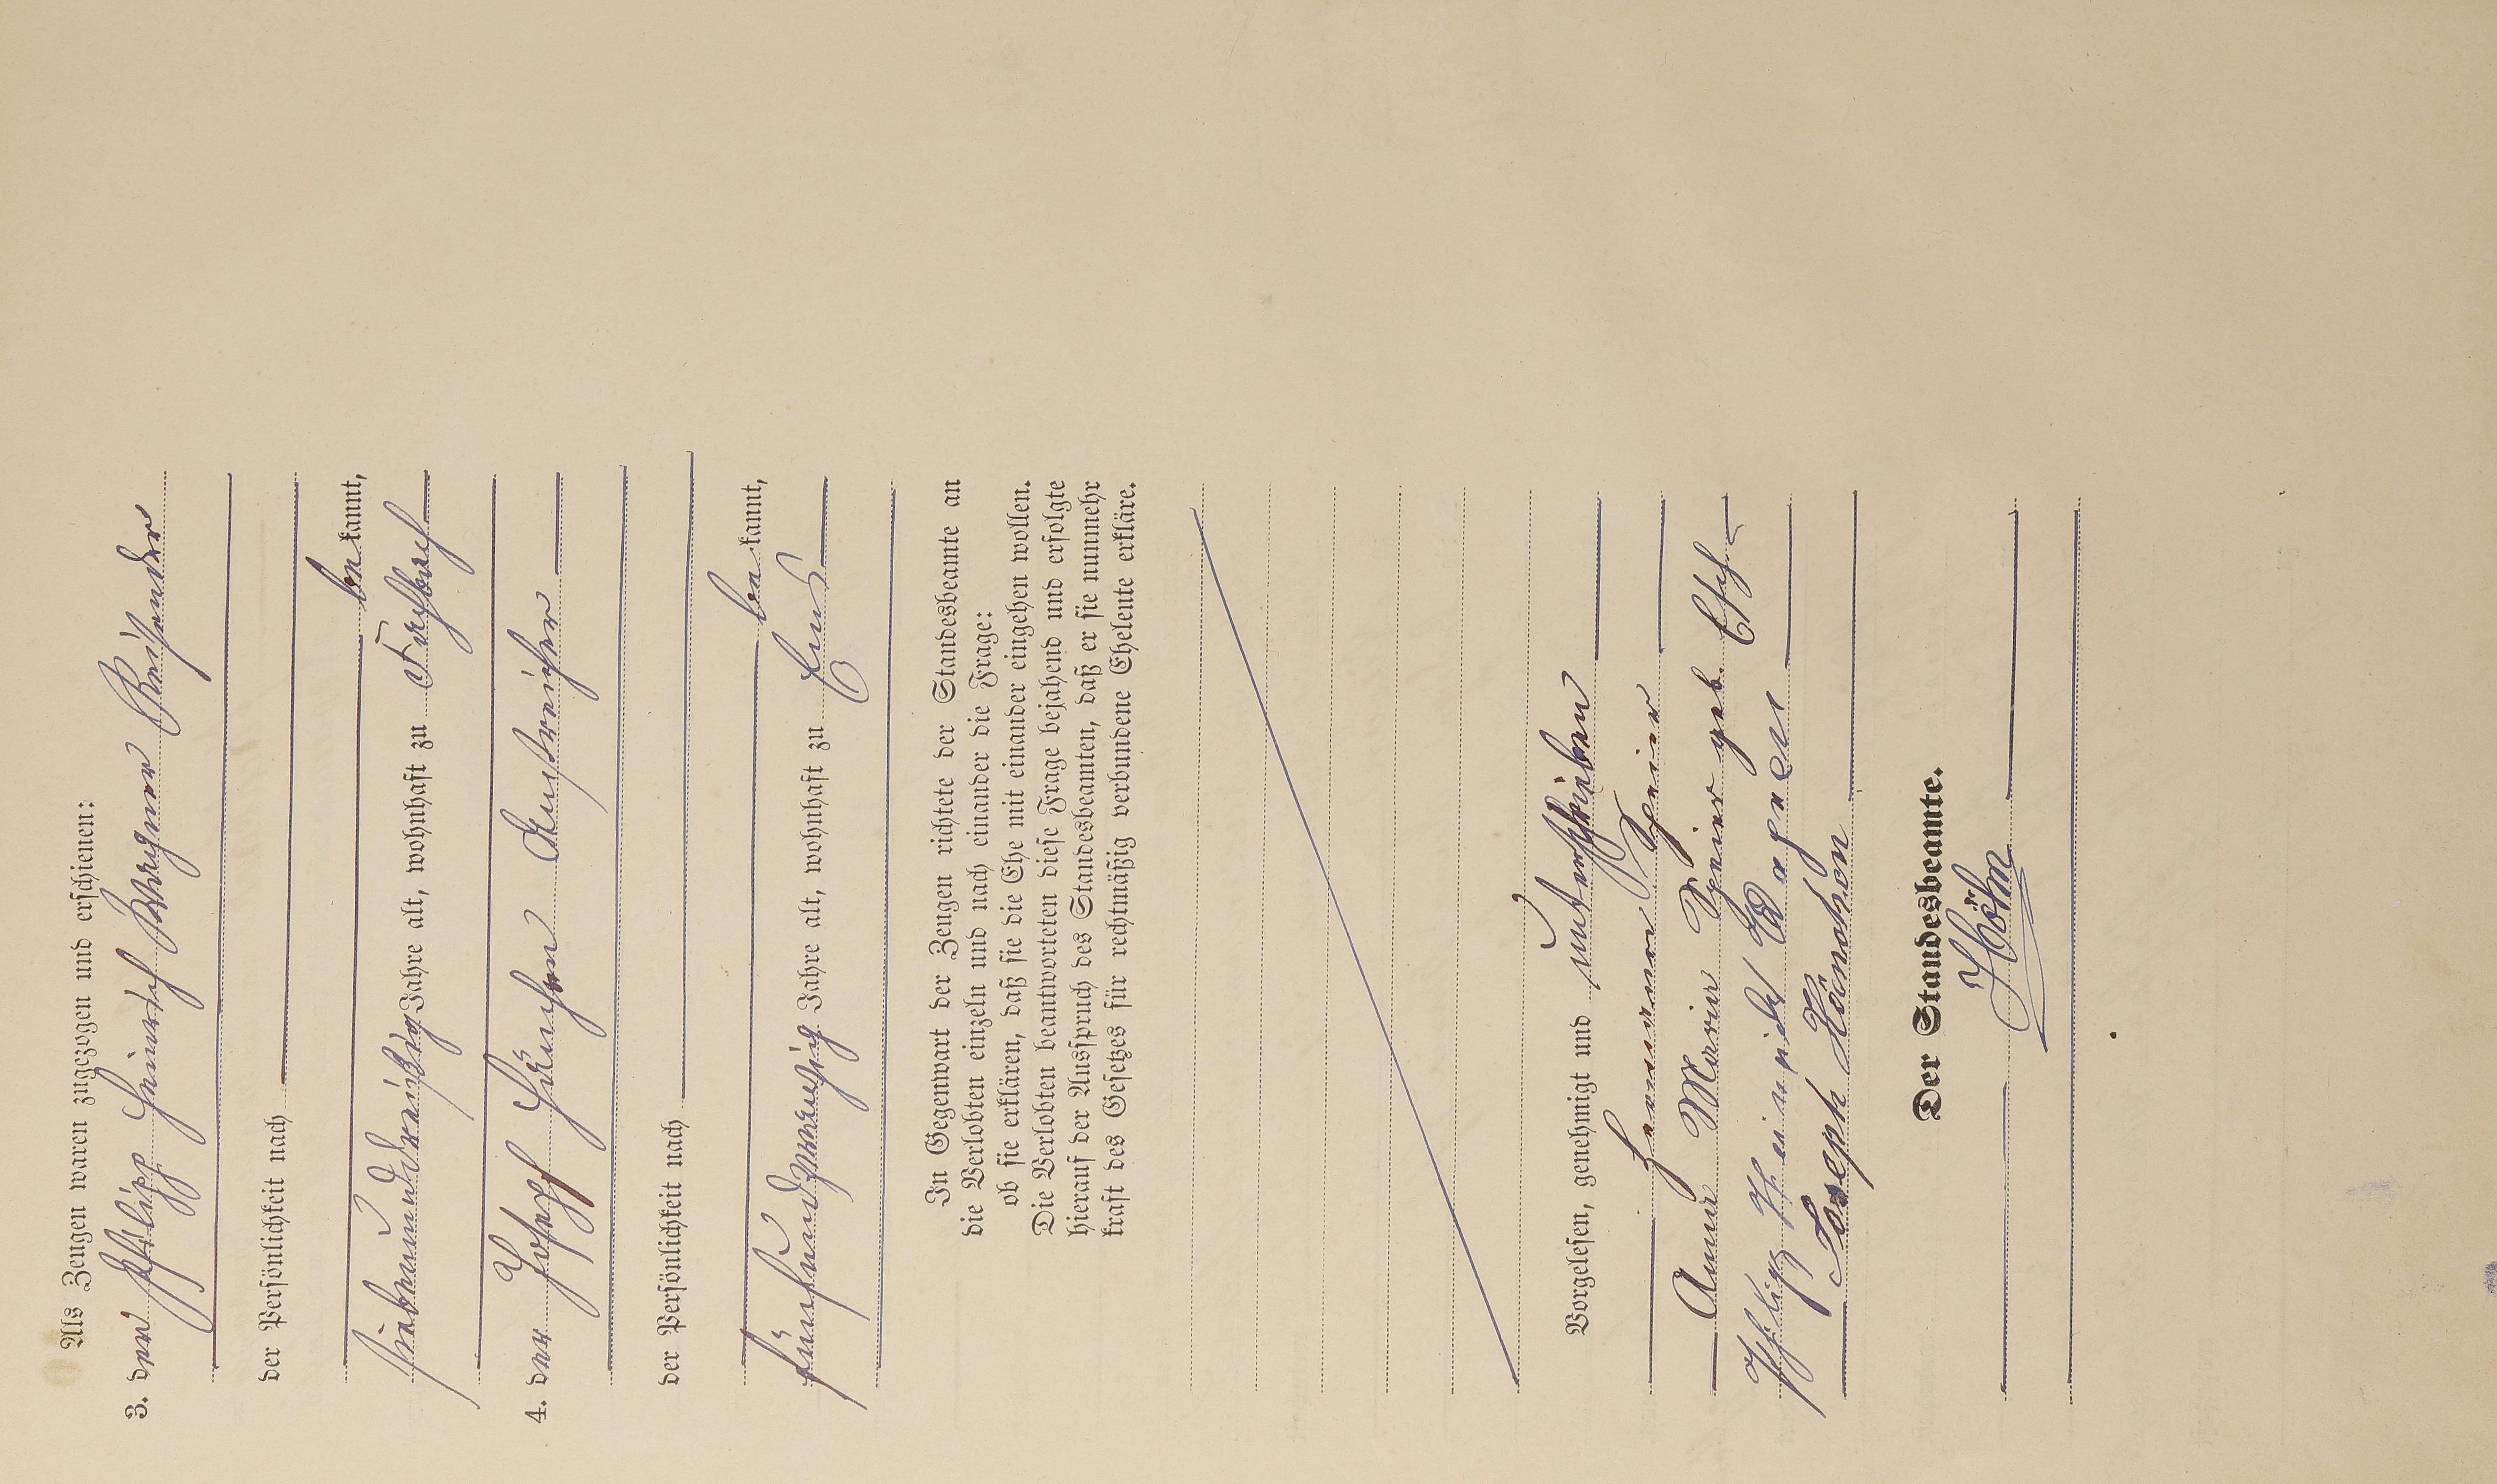 Als Zeugen waren zugezogen und erschienen:
3. der Philipp Heinrich Wagner Reisender
der Persönlichkeit nach
be kannt,
siebenunddreißig Jahre alt, wohnhaft zu Fischbach
4. der Joseph Hänchen Anstreicher
der Persönlichkeit nach
be kannt,
fünfundzwanzig Jahre alt, wohnhaft zu Ems
In Gegenwart der Zeugen richtete der Standesbeamte an
die Verlobten einzeln und nach einander die Frage:
ob sie erklären, daß sie die Ehe mit einander eingehen wollen.
Die Verlobten beantworteten diese Frage bejahend und erfolgte
hierauf der Ausspruch des Standesbeamten, daß er sie nunmehr
kraft des Gesetzes für rechtmäßig verbundene Eheleute erkläre.
Vorgelesen, genehmigt und unterschrieben
Hermann Speier
Anna Maria Speier geb. Esch
Philipp Heinrich Wagner
Joseph Hänchen
Der Standesbeamte.